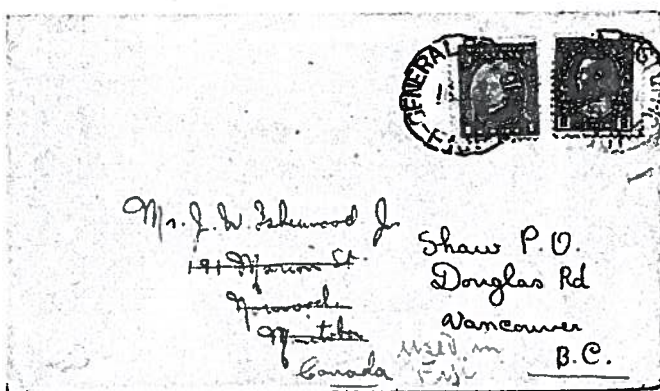 GENERAL
Mr. J. W. Isherwood Jr.
191 Marion St.
Norwood
Manitoba
Canada
Shaw P.O.
Douglas Rd
Vancouver
B.C.